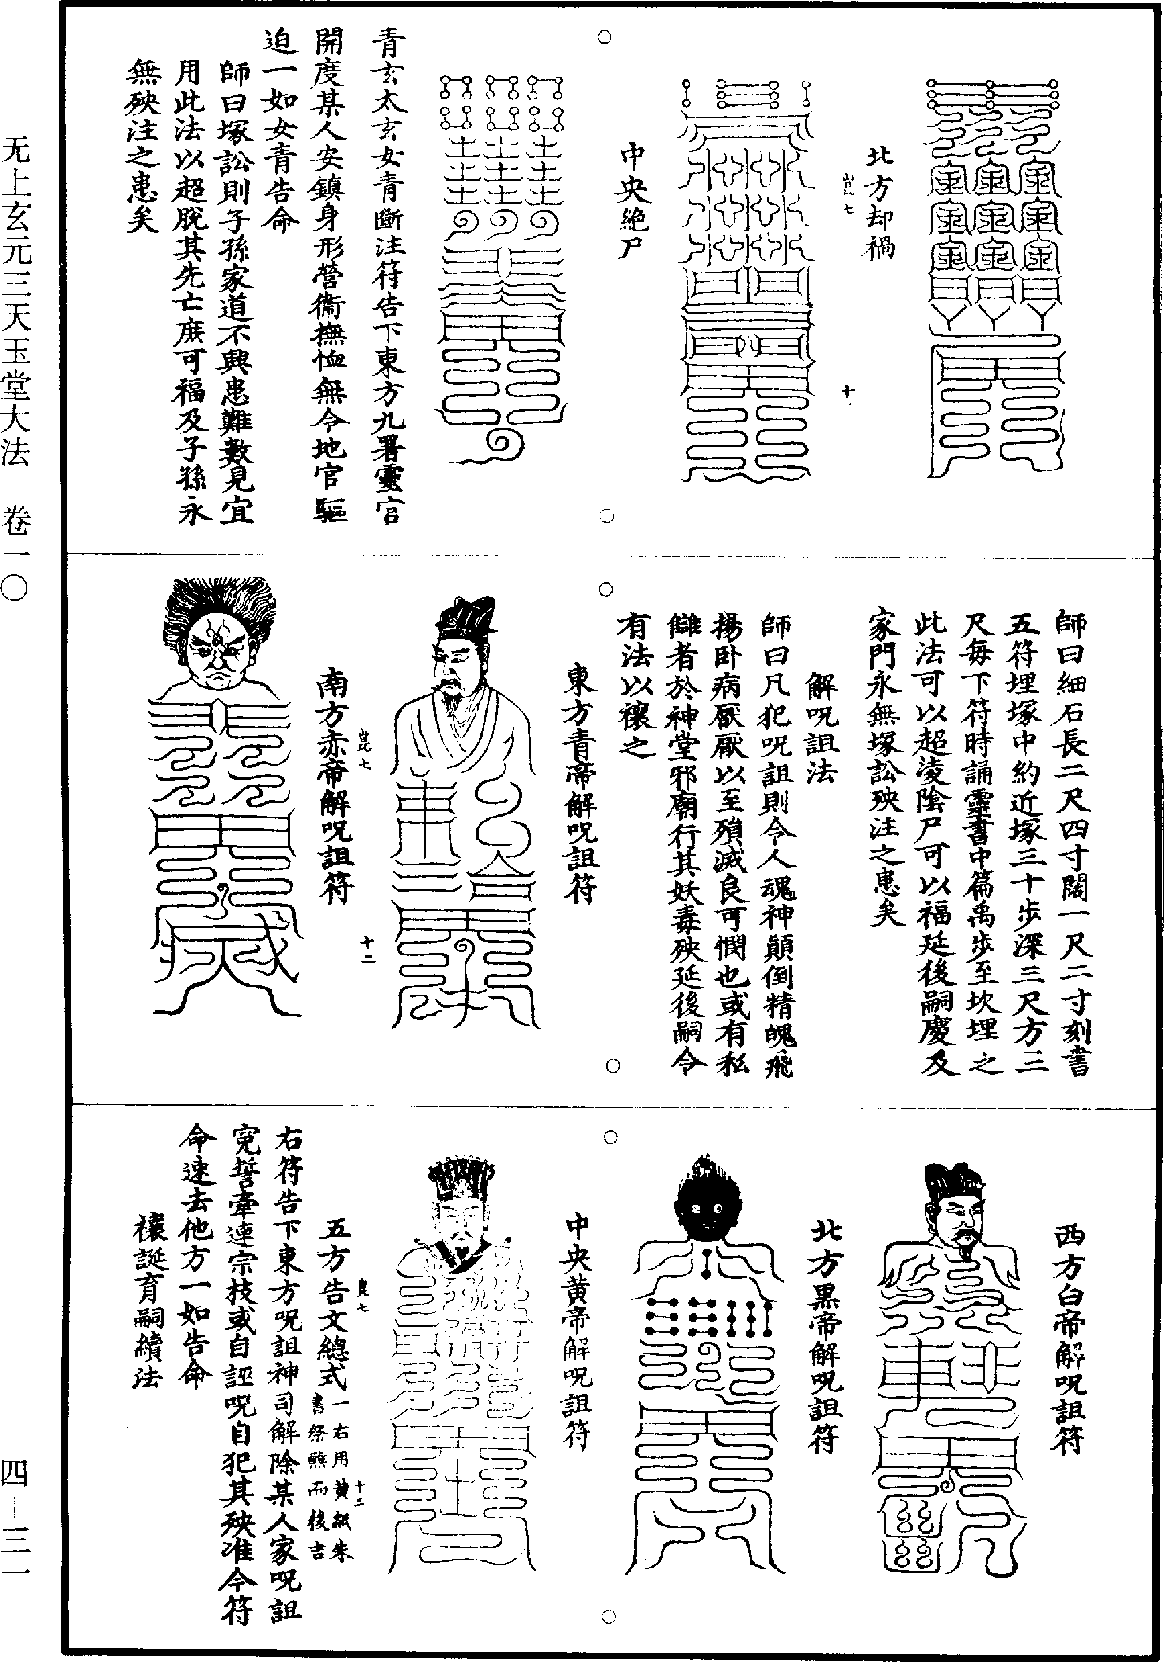 北方却禍
中央絶尸
青玄太玄女青斷注符告下東方九署靈官
開度某人安鎮身形營衛撫恤無令地官驅
迫一如女青告命
師曰塚訟則子孫家道不興患難數見宜
用此法以超脫其先亡庶可福及子孫永
無殃注之患矣
師曰細石長二尺四寸闊一尺二寸刻書
五符埋塚中約近塚三十步深三尺方三
尺每下符時誦靈書中篇禹步至坎埋之
此法可以超凌陰尸可以福延後嗣慶及
家門永無塚訟殃注之患矣
解呪詛法
師曰凡犯呪詛則令人魂神顛倒精魄飛
揚卧病厭厭以至殞滅良可憫也或有私
讎者於神堂邪廟行其妖毒殃延後嗣今
有法以禳之
東方青帝解呪詛符
南方赤帝解呪詛符
十二
西方白帝解呪詛符
北方黑帝解呪詛符
中央黄帝解呪詛符
五方告文總式一右用黄紙朱
書祭醮而後吉
十三
右符告下東方呪詛神司解除某人家呪詛
寃誓牽連宗枝或自誣呪自犯其殃准令符
命速去他方一如告命
禳誕育嗣續法
无上玄元三天玉堂大法 卷一〇
四—三一